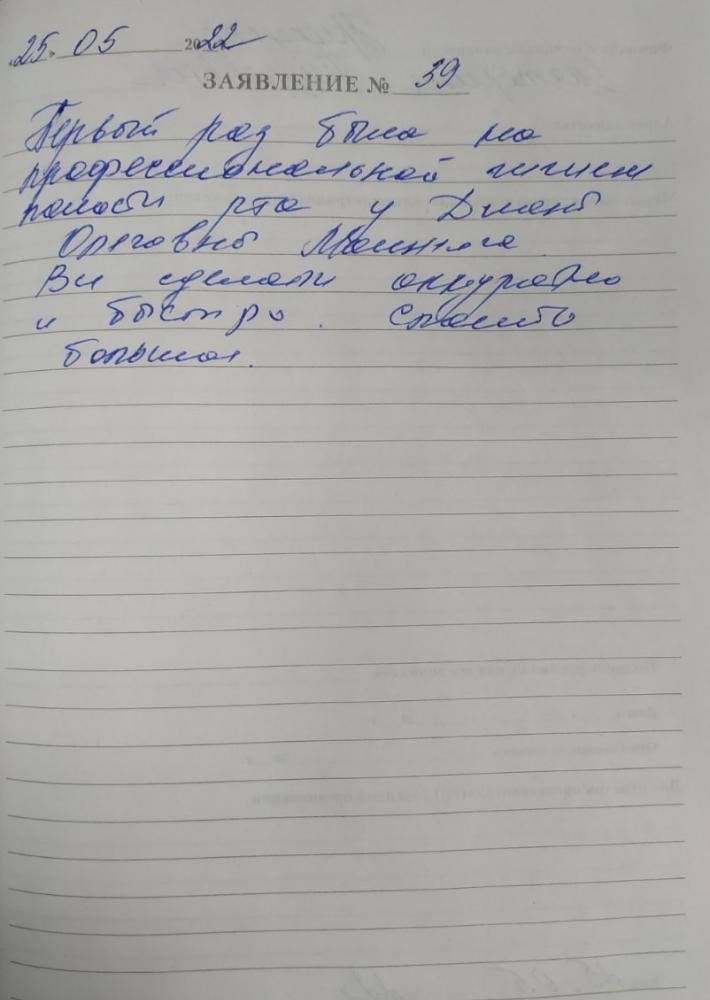 «25» 05 2022
ЗАЯВЛЕНИЕ № 39
Первый раз была на
профессиональной гигиене
полости рта у Дианы
Олеговны
Все сделали аккуратно
и быстро. Спасибо
большое.